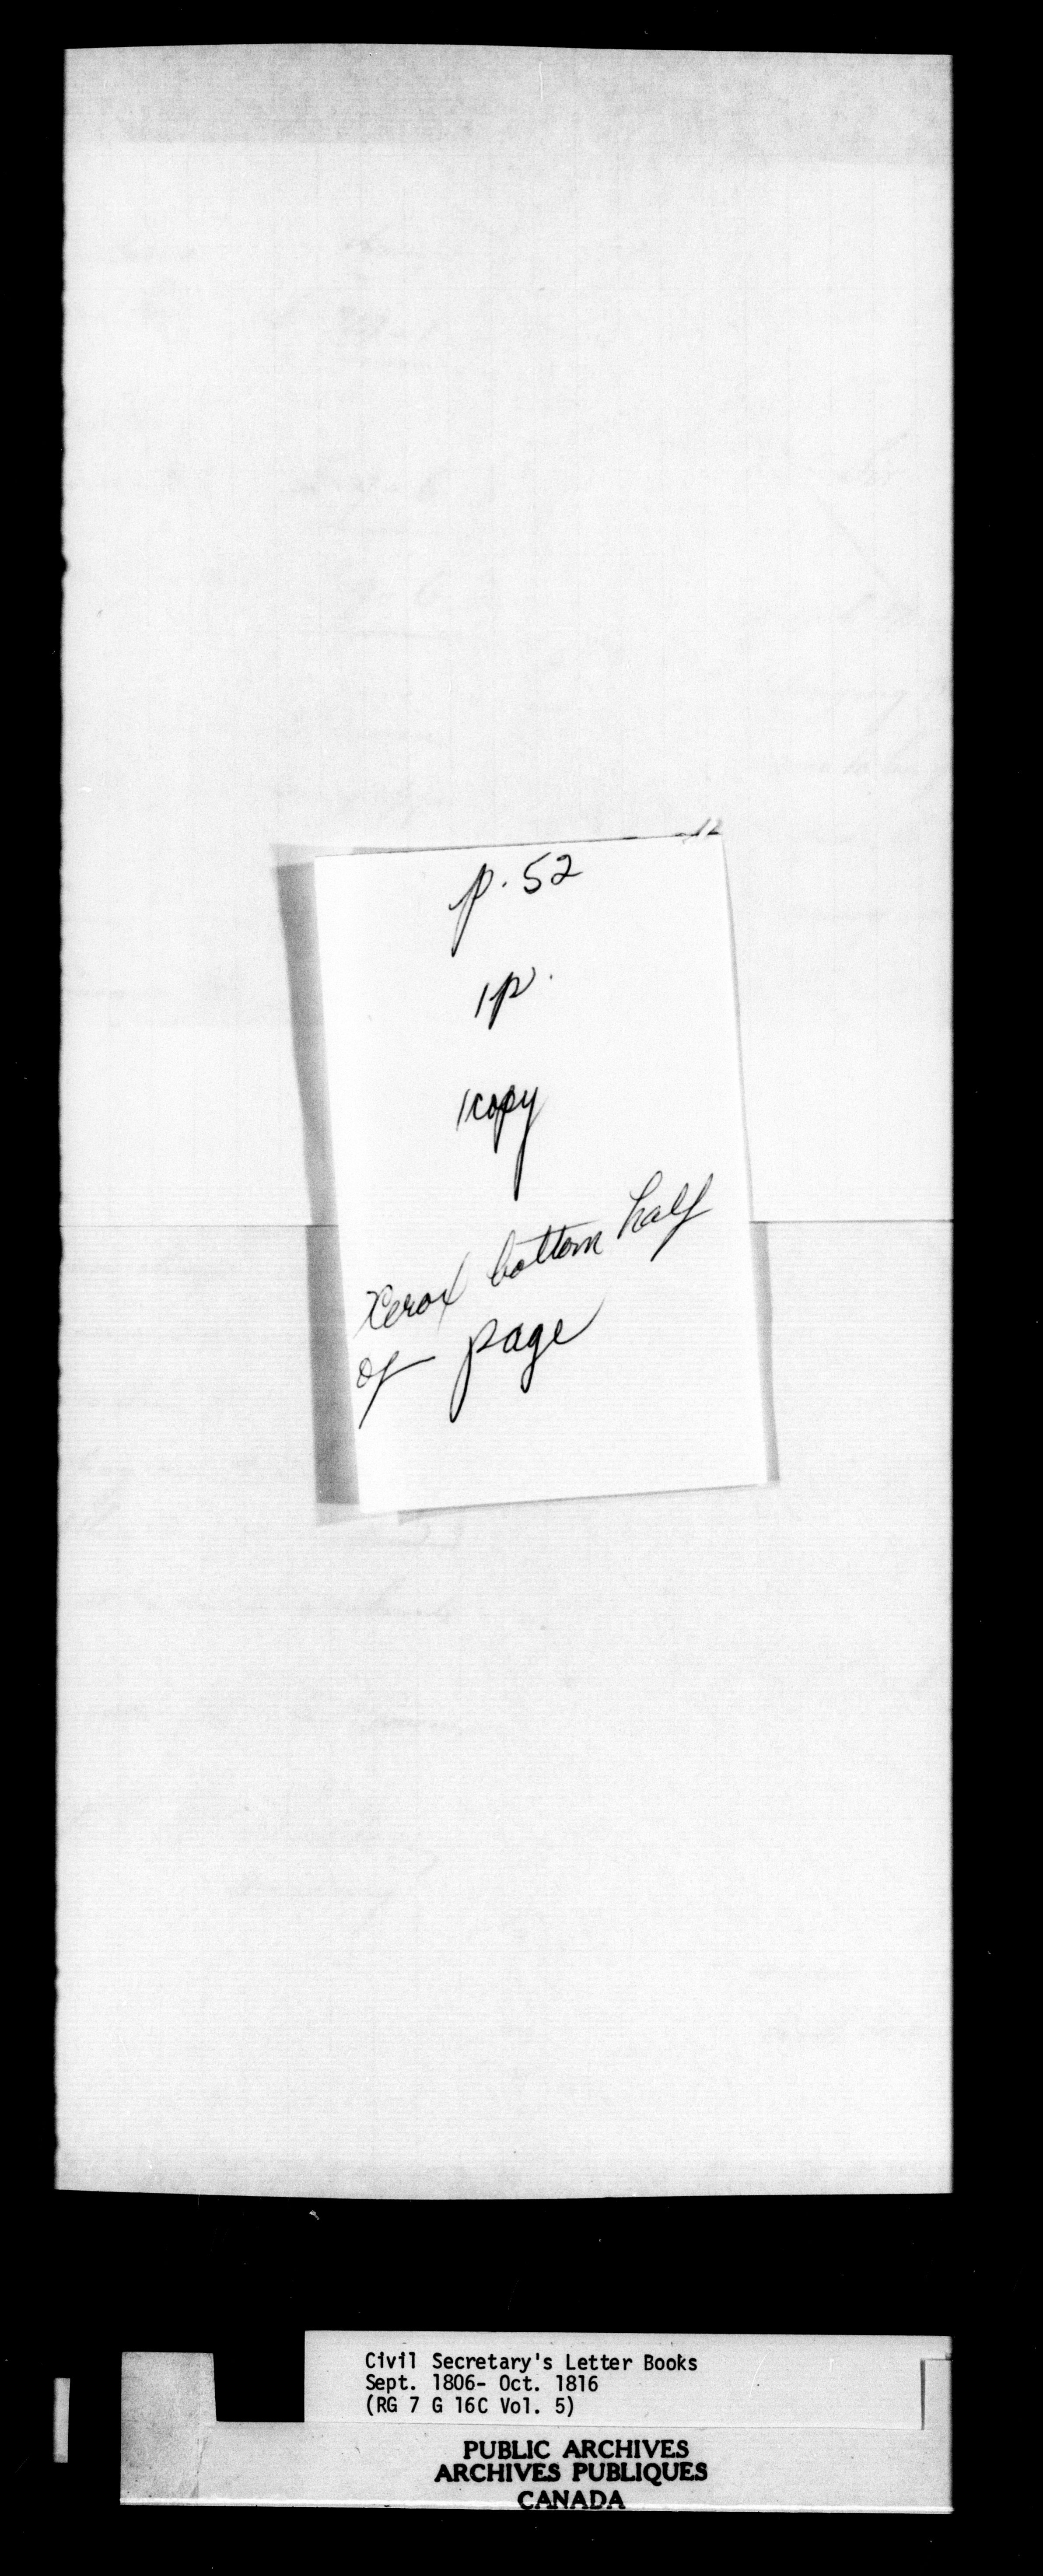 p. 52
1p.
1copy
Xerox bottom half
of page
Civil Secretary's Letter Books
Sept. 1806- Oct. 1816
(RG 7 G 16C Vol. 5)
PUBLIC ARCHIVES
ARCHIVES PUBLIQUES
CANADA